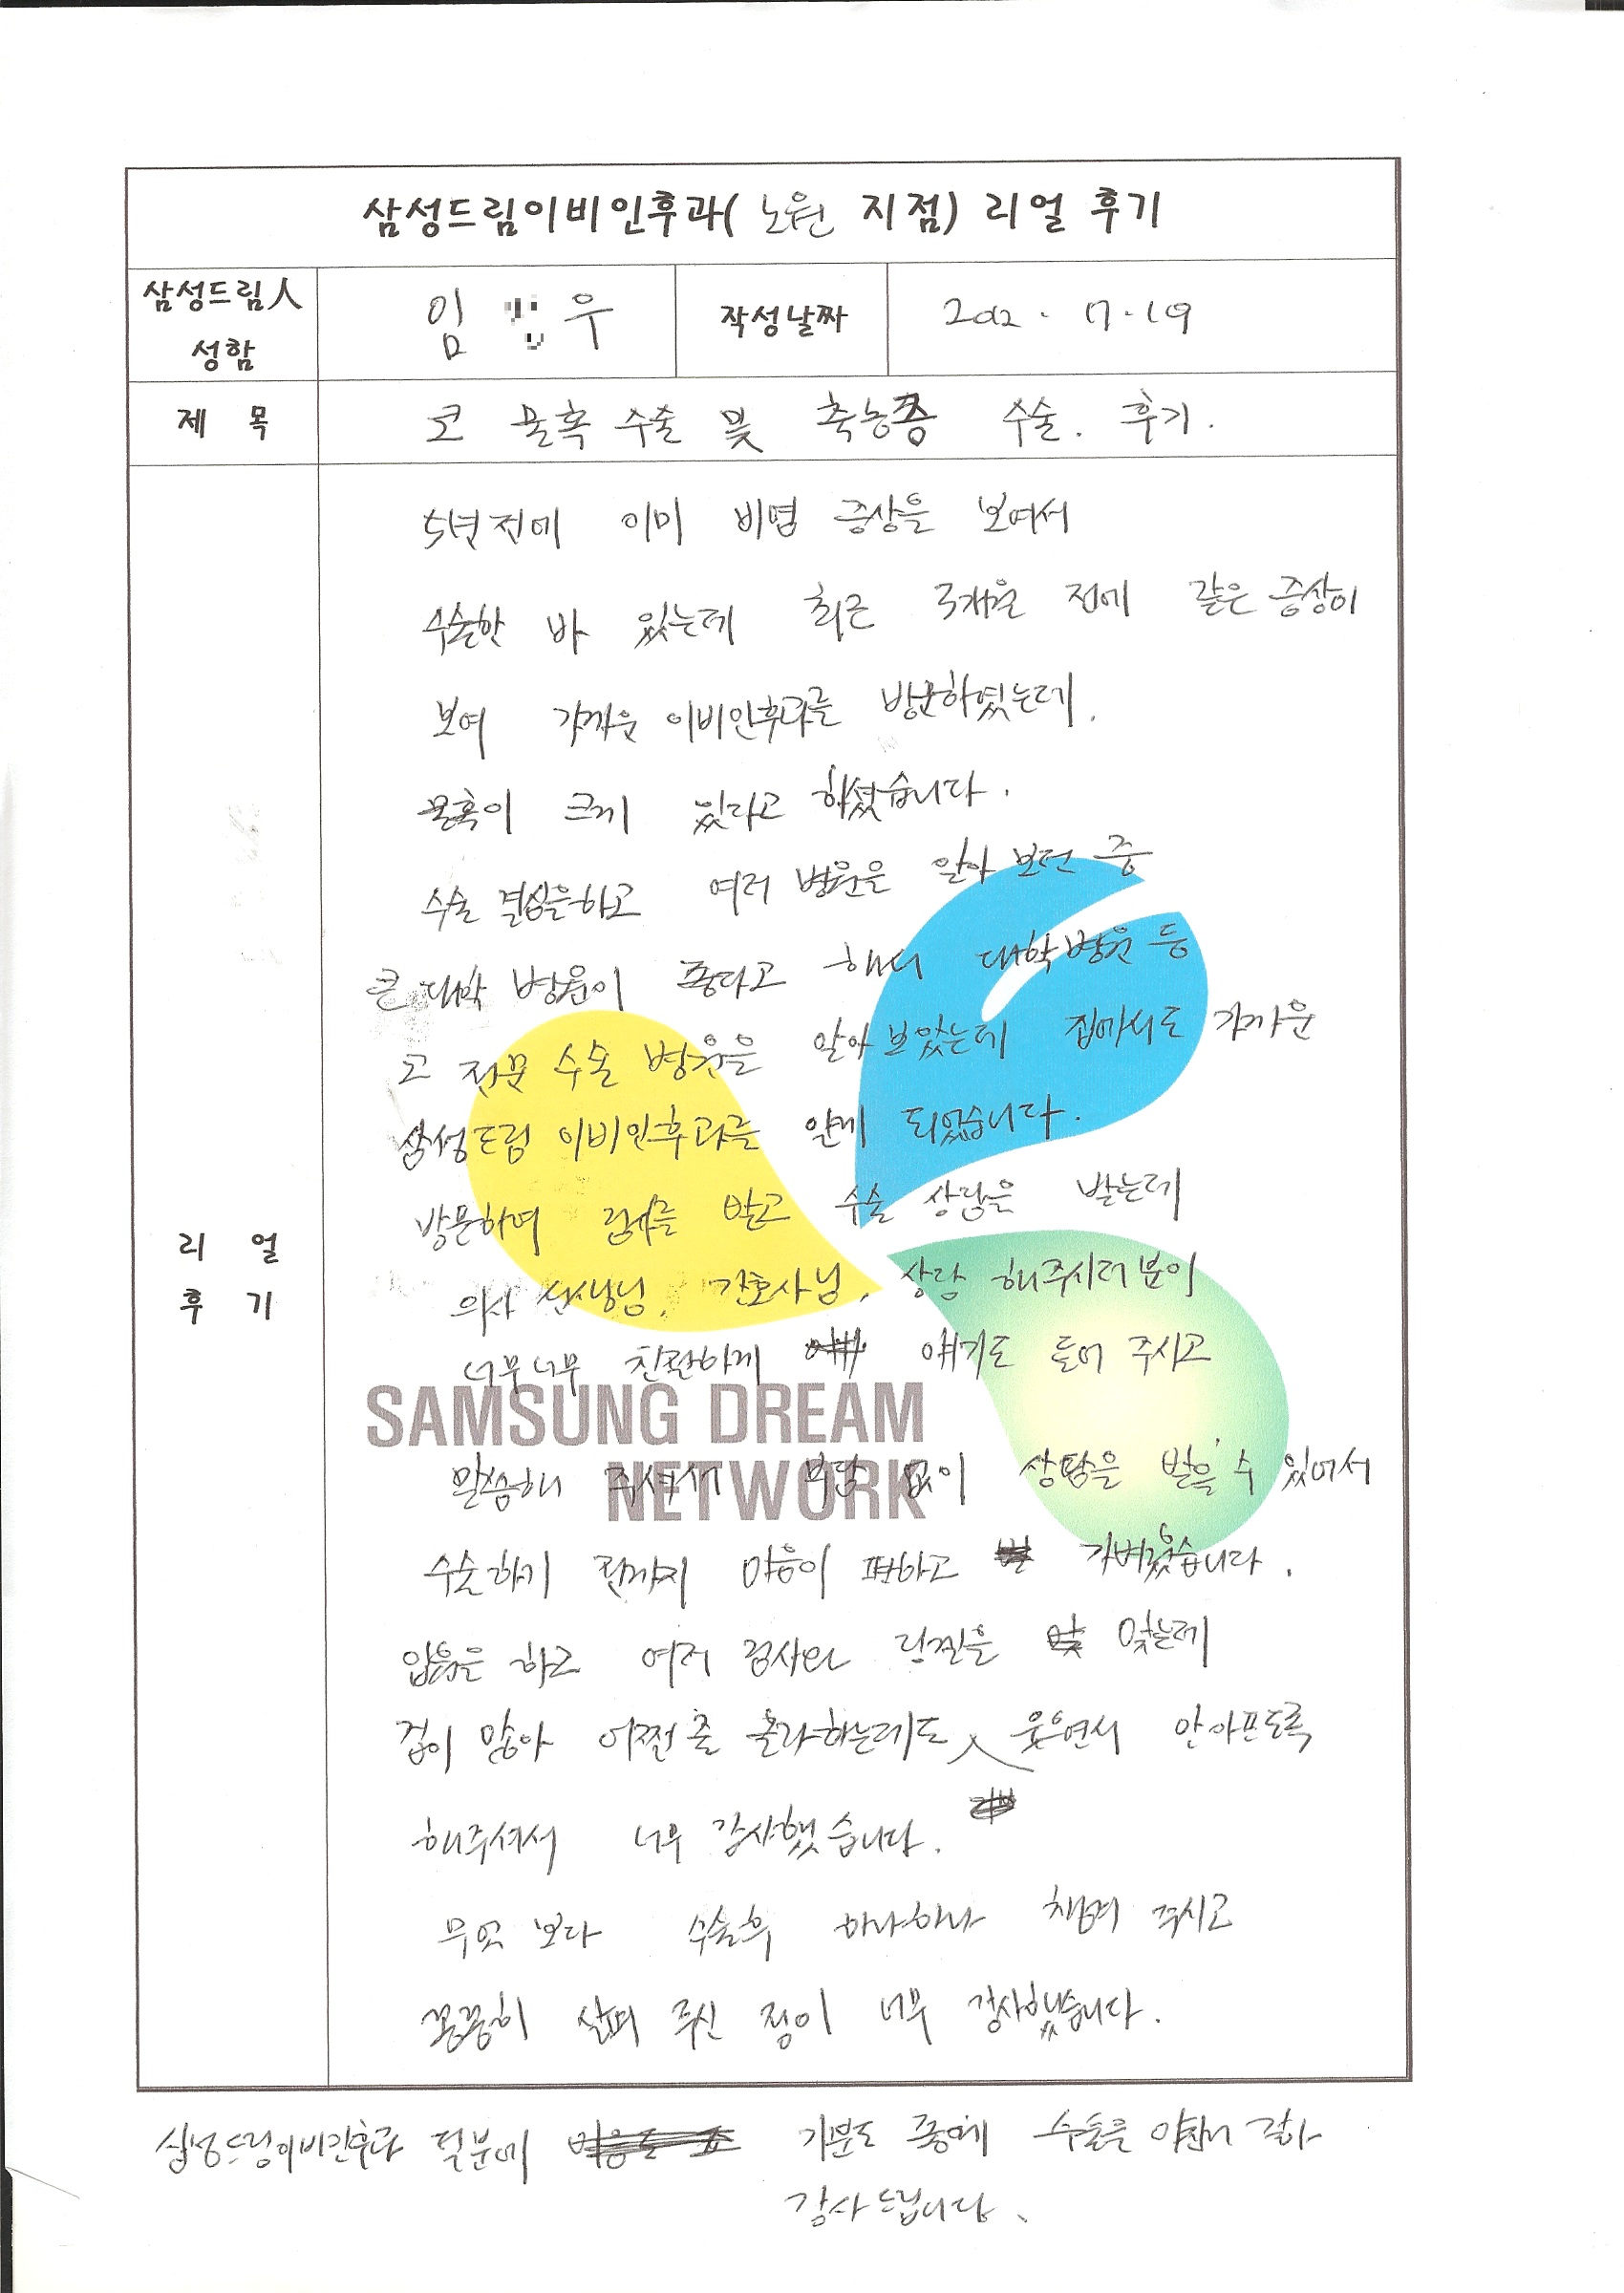 삼성드림이비인후과( 노원 지점) 리얼 후기
삼성드림人 성함
임 우
작성날짜
2012. 17. 19
제 목
코 물혹 수술 및 축농증 수술. 후기.
리 얼 후 기
5년전에 이미 비염 증상을 보여서
수술한 바 있는데 최근 3개월 전에 같은 증상이
보여 가까운 이비인후과를 방문하였는데.
물혹이 크게 있다고 하셨습니다.
수술 결심을하고 여러 병원을 알아 보던 중
큰 대학 병원이 좋다고 해서 대학병원 등
코 전문 수술 병원을 알아 보았는데 집에서도 가까운
삼성드림 이비인후과를 알게 되었습니다.
방문하여 검사를 받고 수술 상담을 받는데
의사 선생님, 간호사님, 상담 해주시러분이
너무너무 친절하게 얘기도 들어 주시고
SAMSUNG DREAM
NETWORK
말씀해 주셔서 부담 없이 상담을 받을 수 있어서
수술하기 전까지 마음이 편하고 가벼웠습니다.
입원을 하고 여러 검사와 링겔을 맞는데
겁이 많아 어쩔줄 몰라하는데도 웃으면서 안아프도록
해주셔서 너무 감사했습니다.
무엇 보다 수술후 하나하나 챙겨 주시고
꼼꼼히 살펴 주신 점이 너무 감사했습니다.
삼성드림이비인후과 덕분에 기분도 좋게 수술을 잘하
감사드립니다.